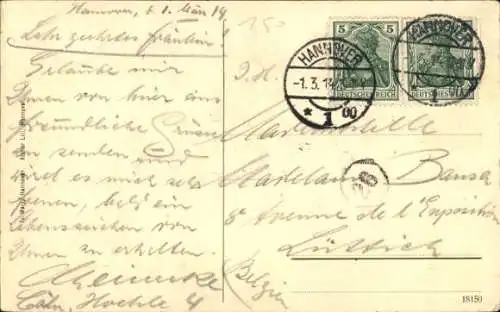 Hannover, d. 1. März 14
Sehr geehrtes Fräulein!
Erlaube mir
Ihnen von hier aus
freundliche Grüsse
zu senden und
wird es mich sehr
freuen, bald ein
Lebenszeichen von
Ihnen zu erhalten.
Cöln,
150
5
5
DEUTSCHES REICH
DEUTSCHES REICH
HANNOVER
-1.3.14
* 1 00
HANNOVER
1
Mademoiselle
Madelaine Bansa
8e Avenue de l'Exposition
Lüttich
Belgien
18150